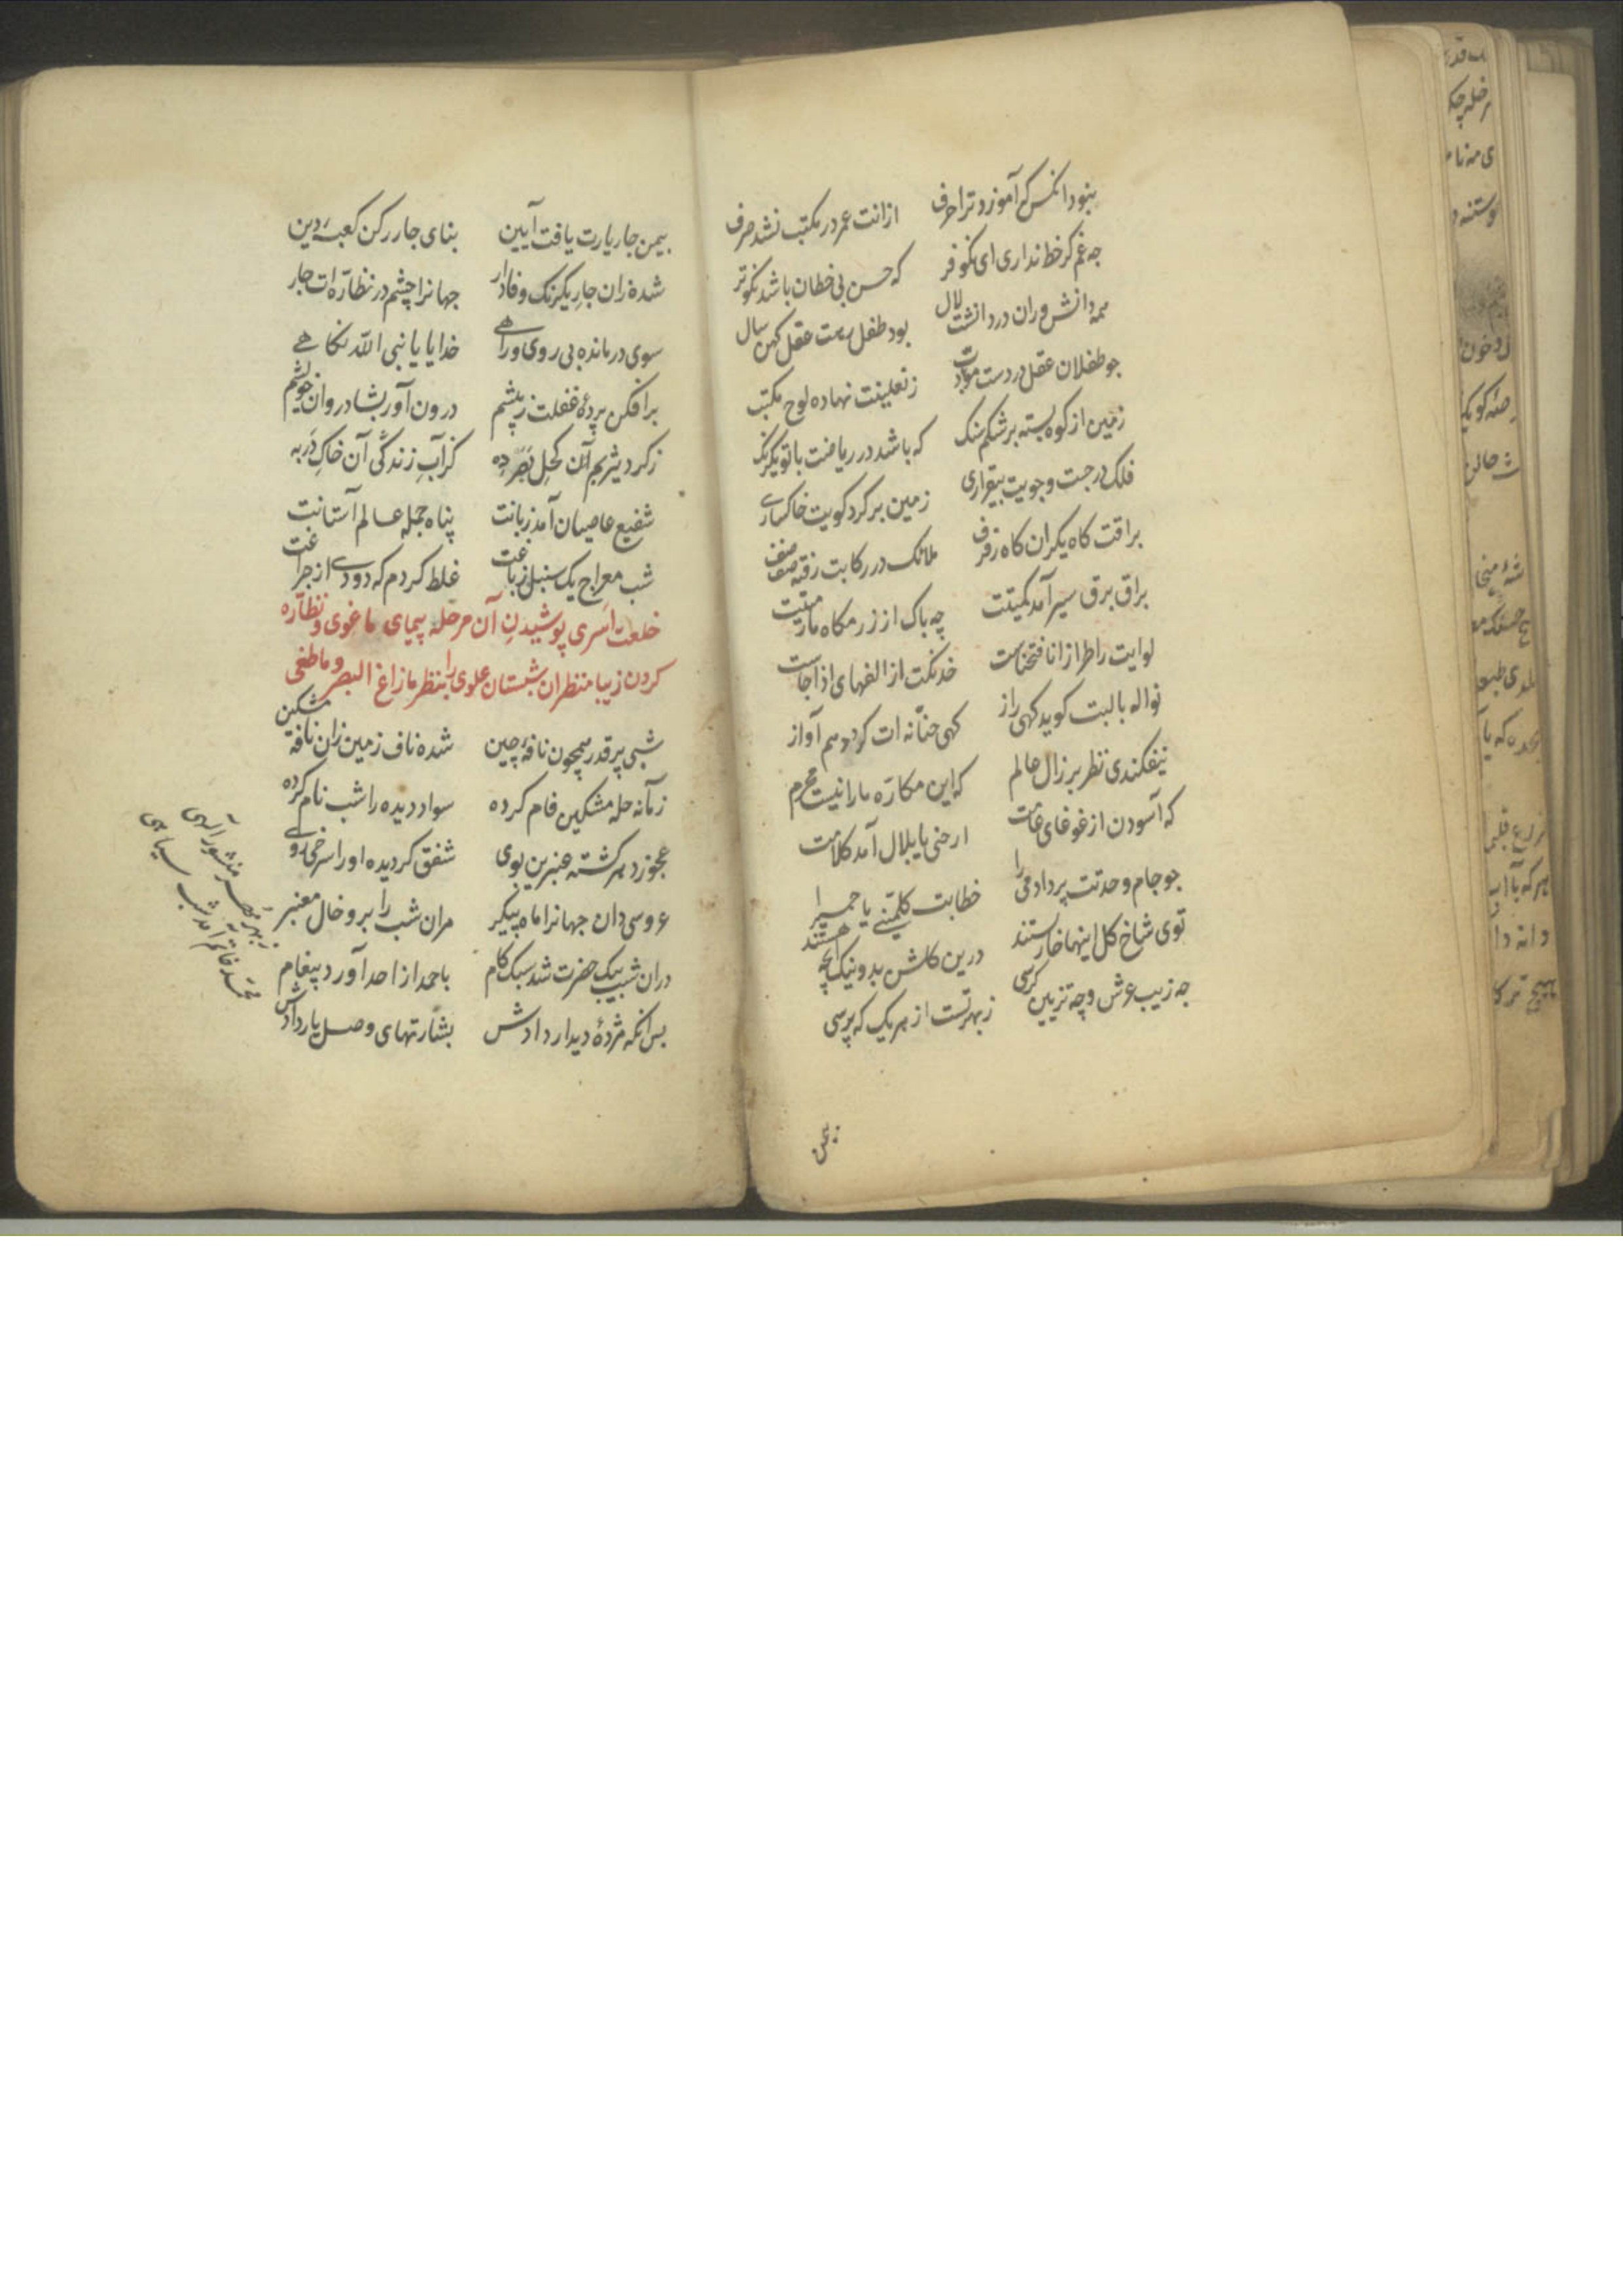 بنود انکس که آموزد ترا حرف ازانت عمر در مکتب نشد صرف
چه غم کر خط نداری ای نکو فر که حسن بی خطان باشد نکوتر
همه دانش وران در دانشت لال بود طفل رهت عقل کهن سال
جو طفلان عقل در دست ز نعلینت نهاده لوح مکتب
زمین از کوه بسته بر شکم سنک که باشد در ریاضت با تو یکرنک
فلک در جست وجویت بیقراری زمین بر کرد کویت خاکساری
براقت کاه یکران کاه رفرف ملائک در رکابت رفته صف صف
براق برق سیر آمد کمیتت چه باک از زر مکاه مارمیتت
لوایت را طراز انا فتحناست خدنکت از الفهای اذا جاست
نواله با لبت کوید کهی راز کهی حنّانه ات کردد هم آواز
نیفکندی نظر بر زال عالم که این مکاره ما را نیست محرم
که آسودن از غوغای عامت ارحنی یا بلال آمد کلامت
جو جام وحدتت پر داد می را خطابت کلمینی یا حمیرا
توی شاخ کل اینها خار هستند درین کلشن بد و نیک آنچه هستند
چه زیب عرش و چه تزیین کرسی ز بهر تست از هر یک که پرسی
بیمن
بیمن جار یارت یافت آیین بنای جار رکن کعبۀ دین
شده زان جار یکرنک وفادار جهانرا چشم در نظّاره ات جار
سوی درمانده بی روی وراهی خدایا یا نبی الله نکاهی
برافکن پردۀ غفلت ز پیشم درون آور بشادروان خویشم
ز کرد یثربم آن کحل بصر ده کز آبِ زندکی آن خاکِ در به
شفیع عاصیان آمد زبانت پناه جمله عالم آستانت
شب معراج یک سنبل ز باغت غلط کردم که دودی از جراغت
خلعت اسری پوشیدنِ آن مرحله پیمای ما غوی و نظّاره
کردن زیبا منظران شبستان علوی را بنظر ما زاغ البصر و ما طغی
شبی پر قدر همچون نافۀ چین شده ناف زمین زان نافه مشکین
زمانه حله مشکین فام کرده سواد دیده را شب نام کرده
عجوز دهر کشته عنبرین بوی شفق کردیده او را سرخی روی
عروسی دان جهانرا ماه پیکر مران شب را برو خال معنبر
دران شب پیک حضرت شد سبک کام باحمد از احد آورد پیغام
پس انکه مژدۀ دیدار دادش بشارتهای وصل یار دادش
ز بهر مهر منشور آلهی
محمد خاتم آمد شب سیاهی